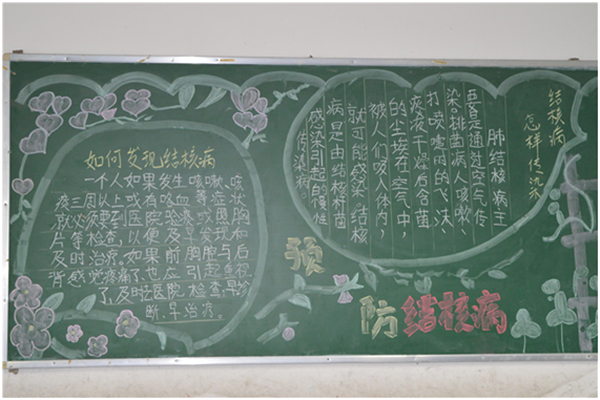 如何发现结核病
一个人如果发生咳嗽、咳
痰三周以上或有血等症状
就必须要到医院验痰或胸
片等检查,以便及早发现和
及时治疗。如果前胸与后
背感觉疼痛了,也应引起重视
了,及时去医院检查,早诊
断、早治疗。
结核病
怎样传染
肺结核病主
要是通过空气传
染。排菌病人咳嗽、
打喷嚏的飞沫、
痰液干燥后含菌
的尘埃在空气中,
被人们吸入体内,
就可能感染.结核
病是由结核杆菌
感染引起的慢性
传染病。
预
防结核病